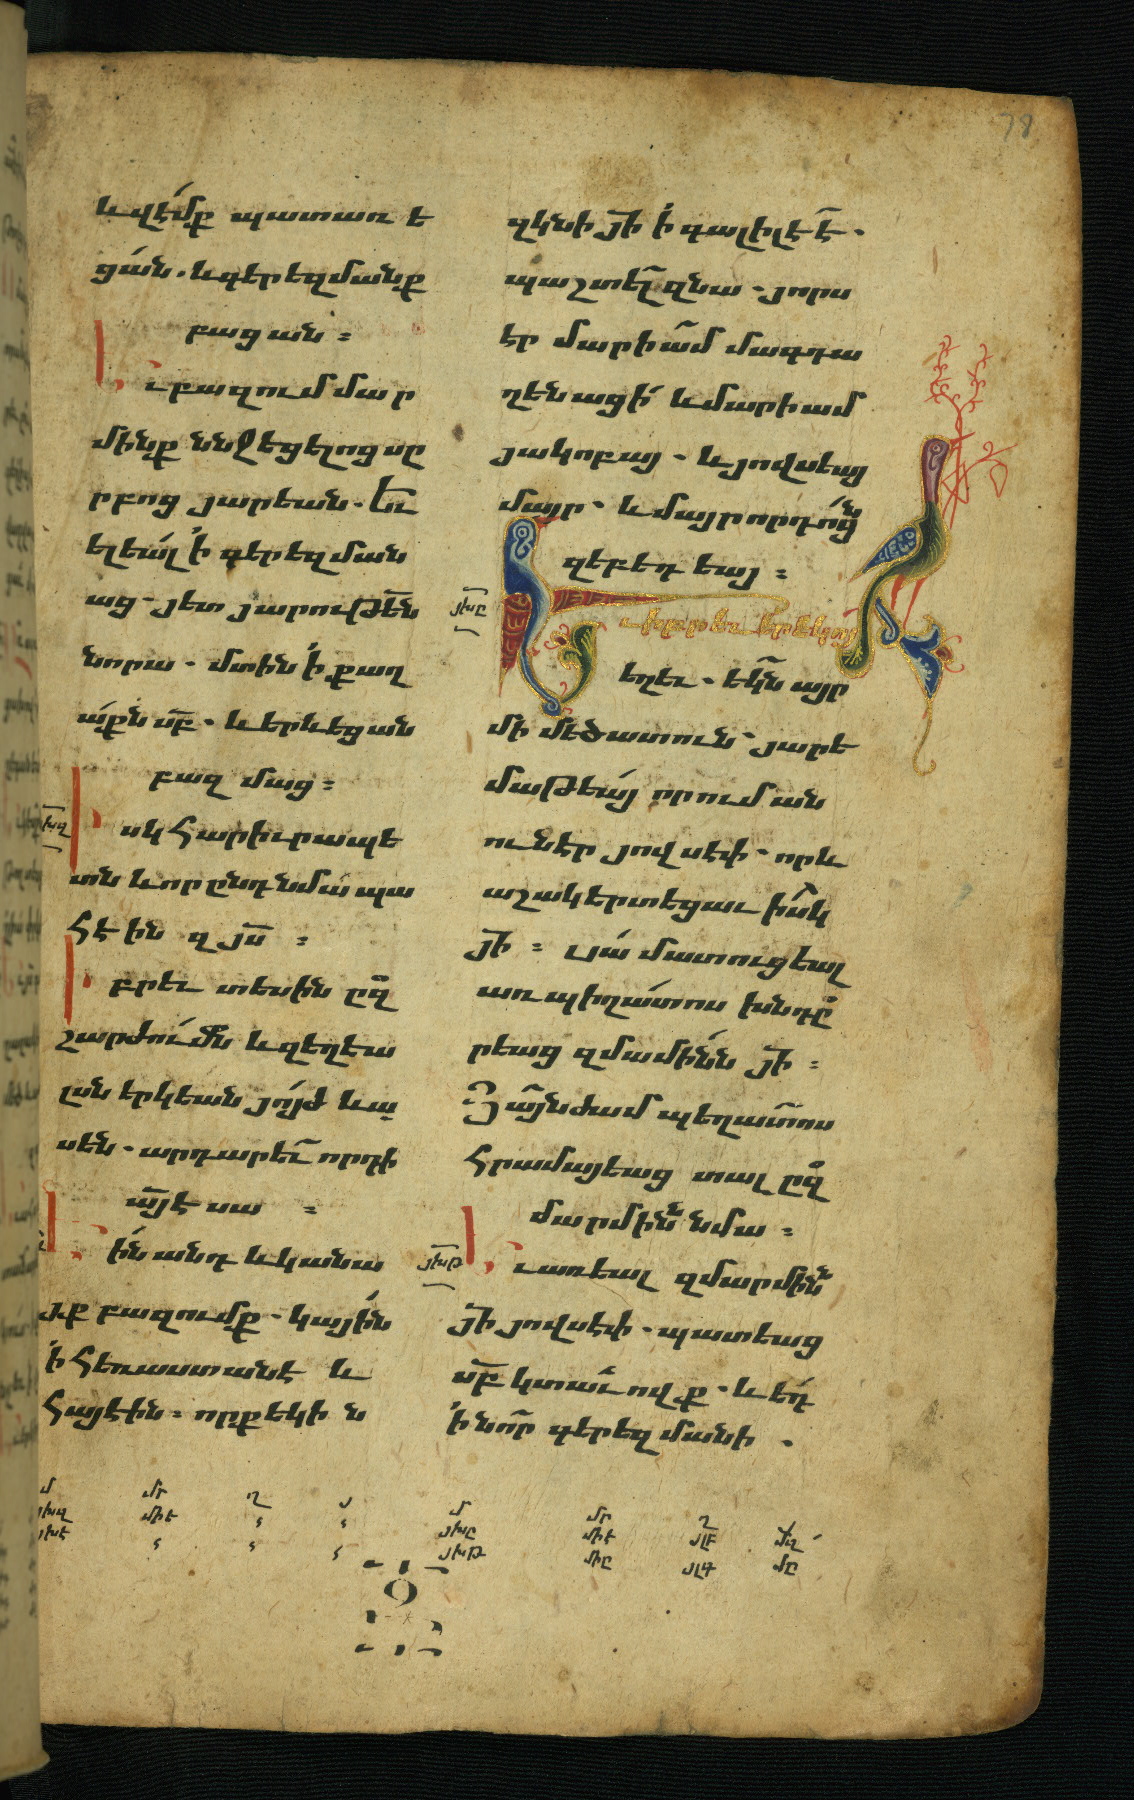 78
և վէմք պատառե
ցան. և գերեզմանք
բացան :
Ւ բազում մար
մինք ննջեցելոց սր
րբոց յարեան. Եւ
ելեալ ՚ի գերեզման
աց. յետ յարութեն
նորա. մտին ՚ի քաղ
աքն սբ. և երևեցան
բազմաց :
Իսկ հարիւրապե
տն և որ ընդ նմա պա
հէին զյս :
Իբրև տեսին ըզ
շարժումն և զեղեա
լսն երկեան յոյժ և ա
սեն. արդարև որդի
այ է սա :
Ին անդ և կանա
յք բազումք. կային
՚ի հեռաստանէ և
հայէին : որք եկին
զկնի յի ՚ի գալիլէէ.
պաշտել զնա. յորս
էր մարիամ մագդա
ղենացի և մարիամ
յակոբայ. և յովսեայ
մայր. և մայր որդոցն
զեբեդեայ :
յխը
Եւ իբրև երեկոյ
եղև. եկն այր
մի մեծատուն. յարե
մաթեայ որում ան
ուն էր յովսէփ. որ և
աշակերտեցաւ իսկ
յի : Սա մատուցեալ
առ պիղատոս խնդր
րեաց զմամինն յի :
Յայնժամ պեղատոս
հրամայեաց տալ ըզ
մարմինն նմա :
յխթ
Ւ առեալ զմարմինն
յի յովսէփ. պատեաց
սբ կտաւովք. և եդ
՚ի նոր գերեզմանի.
մ մր ղ յ
մ մր ղ
յխը միէ
յխթ միը յլգ մը